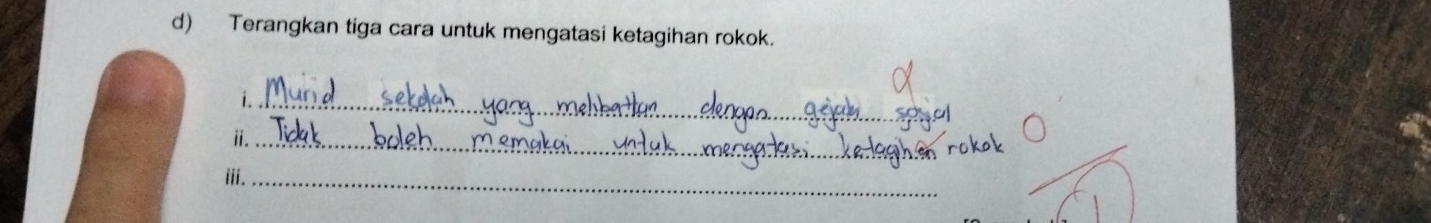 d) Terangkan tiga cara untuk mengatasi ketagihan rokok.
i. Murid sekolah yang melibatkan dengan gejala sosial
ii. Tidak boleh memakai untuk mengatasi ketagihan rokok
iii.